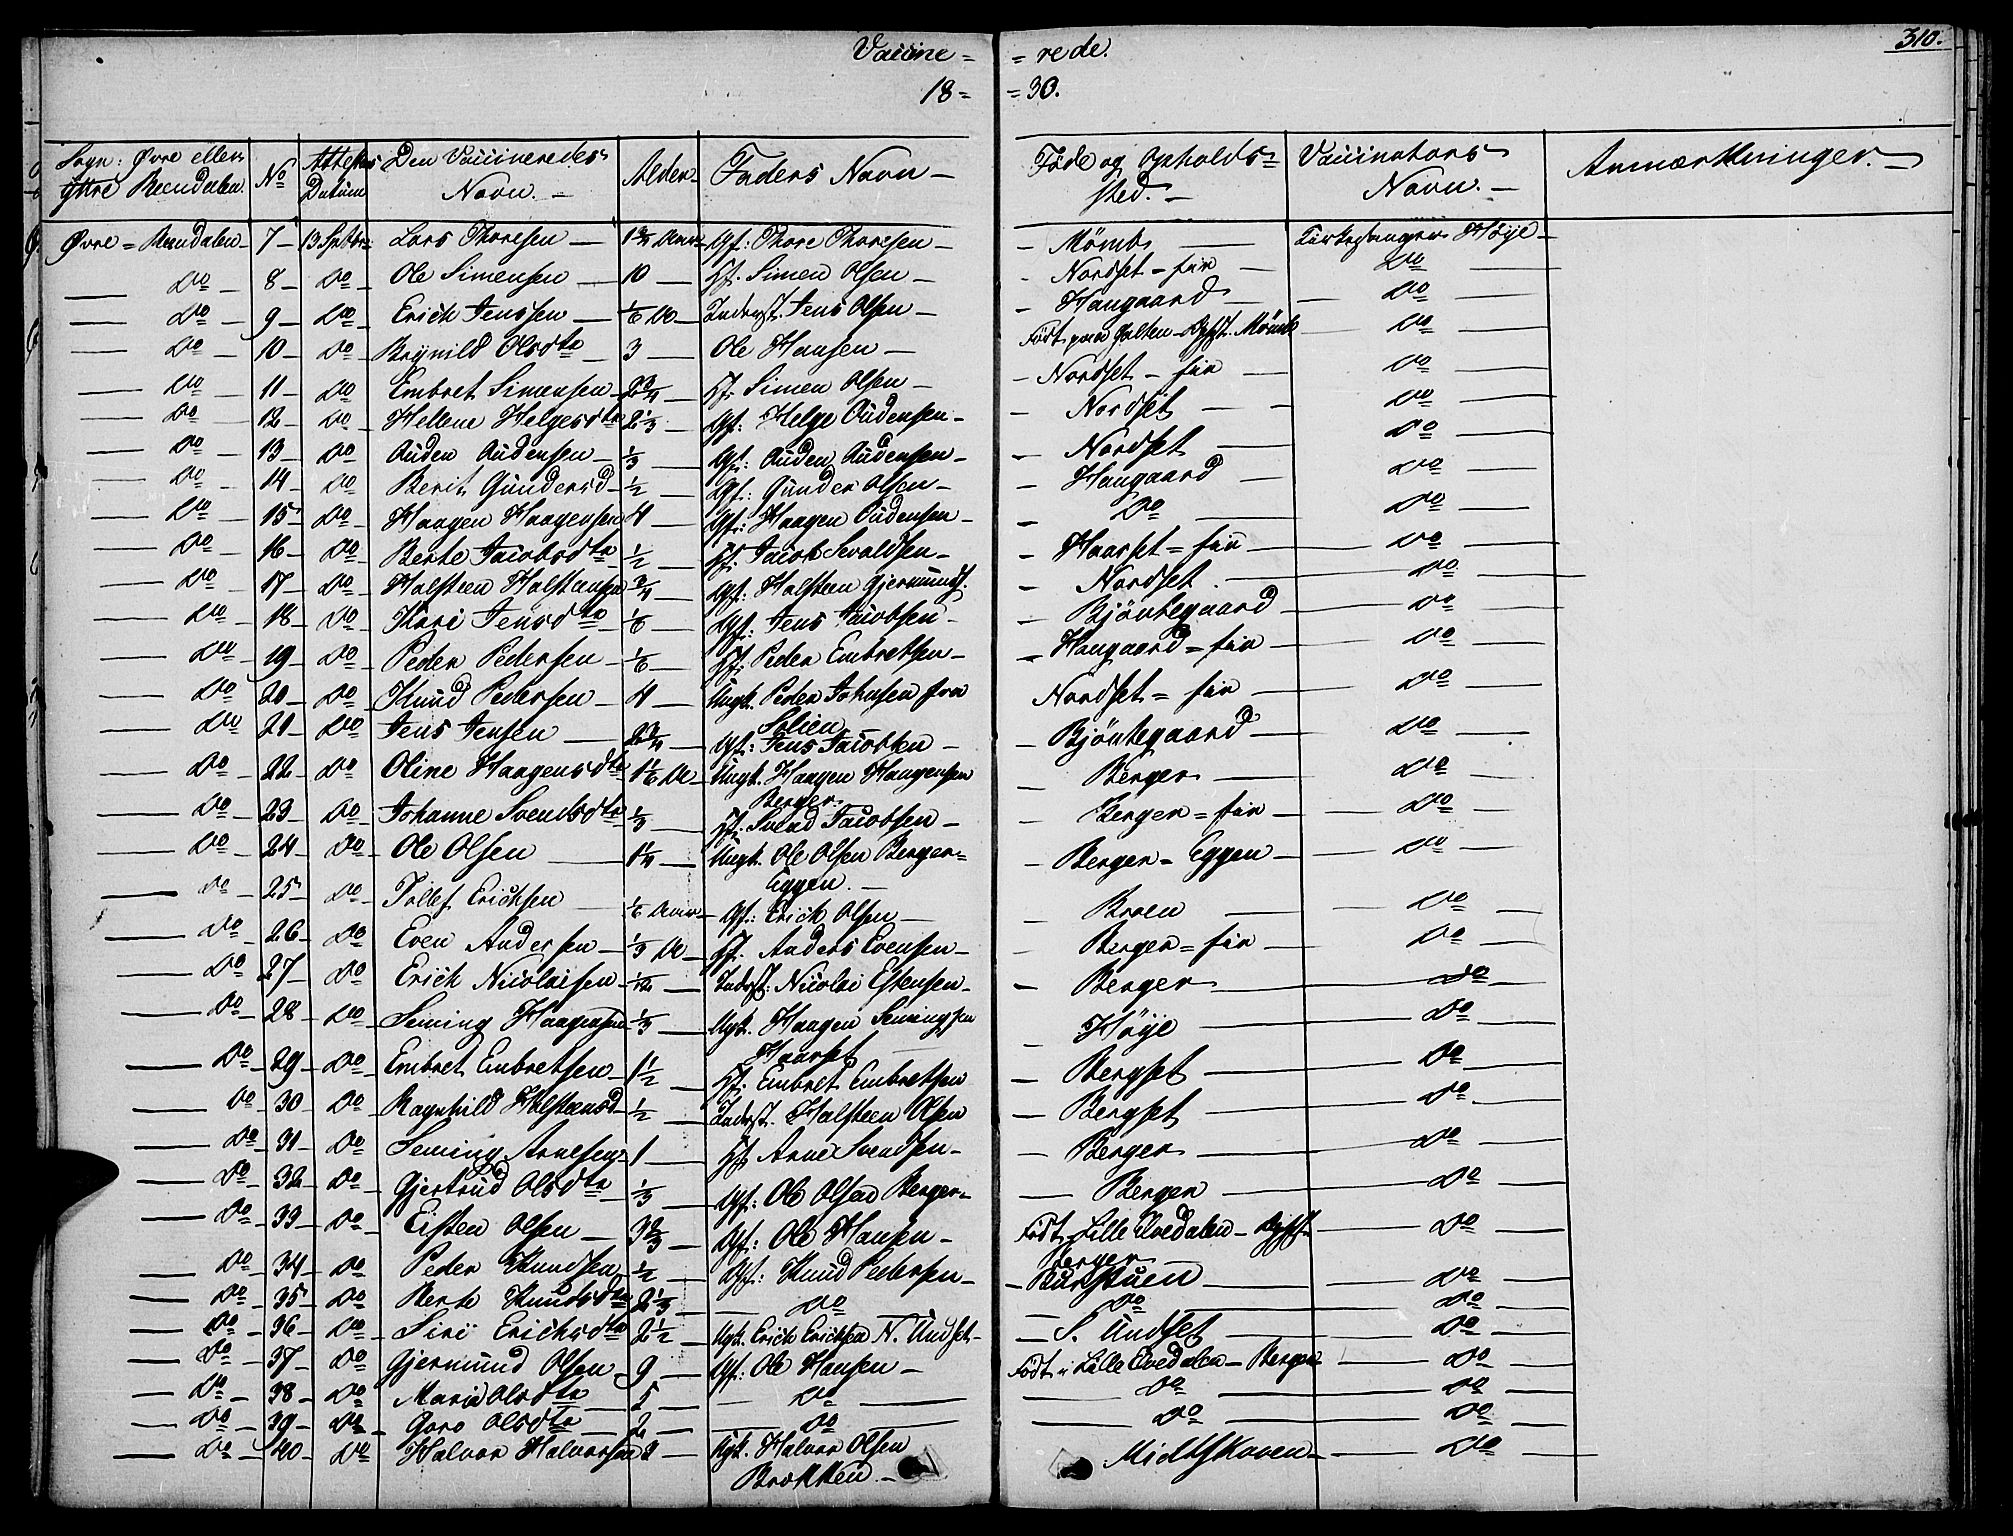 310.
Vaccine = = rede.
18 = = 30.
Sogn: Øvre eller ÿttre Rendalen. No Attestens Datum Den Vaccineredes Navn. Alder Faders Navn Føde og Opholds= sted. Vaccinators Navn. Anmærkninger.
Øvre = Rendalen 7 13 Septbr Lars Thoresen Gf: Thore Thoresen Kirkesanger Høye
Do 8 Do Ole Simensen 10 Hf. Simen Olsen Nordset = Do
Do 9 Do Erich Jenssen 1/6 Do Inderst. Jens Olsen Haugaard Do
Do 10 Do Brÿnild Olsdtr 3 Ole Hansen Født paa Do
Do 11 Do Embret Simensen 2 3/4 Hf. Simen Olsen Nordset Do
Do 12 Do Hellene Helgesdtr 2 1/3 Gf: Helge Oudensen Nordset Do
Do 13 Do Auden Audensen 1/3 Gf: Auden Audensen Nordset Do
Do 14 Do Berit Gundersd 1/2 Gf: Gunder Olsen Haugaard Do
Do 15 Do Haagen Haagensen 4 Gf: Haagen Oudensen Do Do
Do 16 Do Berte Jacobsdtr 1/2 Hf. Jacob Sevaldsen Haarset = Do
Do 17 Do Halsteen Halstensen 3/4 Gf. Halsteen Gjermunds. Nordset. Do
Do 18 Do Kari Jensdtr 1/6 Gf: Jens Jacobsen Bjöntegaard Do
Do 19 Do Peder Pedersen 1/6 Hf. Peder Embretsen Haugaard = Do
Do 20 Do Knud Pedersen 4 Ungk. Peder Johnsen fra Nordset = Do
Do 21 Do Jens Jensen 2 3/4 Gf: Jens Jacobsen Bjöntegaard Do
Do 22 Do Oline Haagensdtr 1 1/6 Do Ungk. Haagen Haagensen Berger Do
Berger
Do 23 Do Johanne Svendsdtr 1/3 Hf. Svend Jacobsen Berger = Do
Do 24 Do Ole Olsen 1 1/4 Ungk. Ole Olsen Berger= Berger = Eggen Do
Eggen.
Do 25 Do Tollef Erichsen 1/6 Aar Gf: Erich Olsen Do
Do 26 Do Even Andersen 1/3 Do Hf. Anders Evensen Berger = Do
Do 27 Do Erich Nicolaisen Inderst. Nicolai Estensen Berger Do
Do 28 Do Seming Haagensen 1/3 Ugk. Haagen Semingsen Høye Do
Haarset
Do 29 Do Embret Embretsen 1 1/2 Hf. Embret Embretsen Bergset Do
Do 30 Do Ragnhild Halsteensd 1/2 Inderst. Halsteen Olsen Bergset Do
Do 31 Do Seming Arnesen 1 Hf. Arne Svendsen Berger Do
Do 32 Do Gjertrud Olsdtr 1/3 Gf: Ole Olsen Berger Berger Do
Do 33 Do Eisten Olsen 3 2/3 Gf: Ole Hansen Født i Lille Elvedalen Do
Berger
Do 34 Do Peder Knudsen 1/2 Gf: Knud Pedersen Do
Do 35 Do Berte Knudsdtr 2 1/3 Do Do Do
Do 36 Do Siri Erichsdtr 2 1/2 Ugk. Erich Erichsen N. Undset S. Undset Do
Do 37 Do Gjermund Olsen 9 Gf: Ole Hansen Født i Lille Elvedalen = Berger Do
Do 38 Do Maria Olsdtr 5 Do Do Do
Do 39 Do Goro Olsdtr 2 Do Do Do
Do 40 Do Halvor Halvorsen Ugk. Halvor Olsen Midtskoven Do
Brækken.